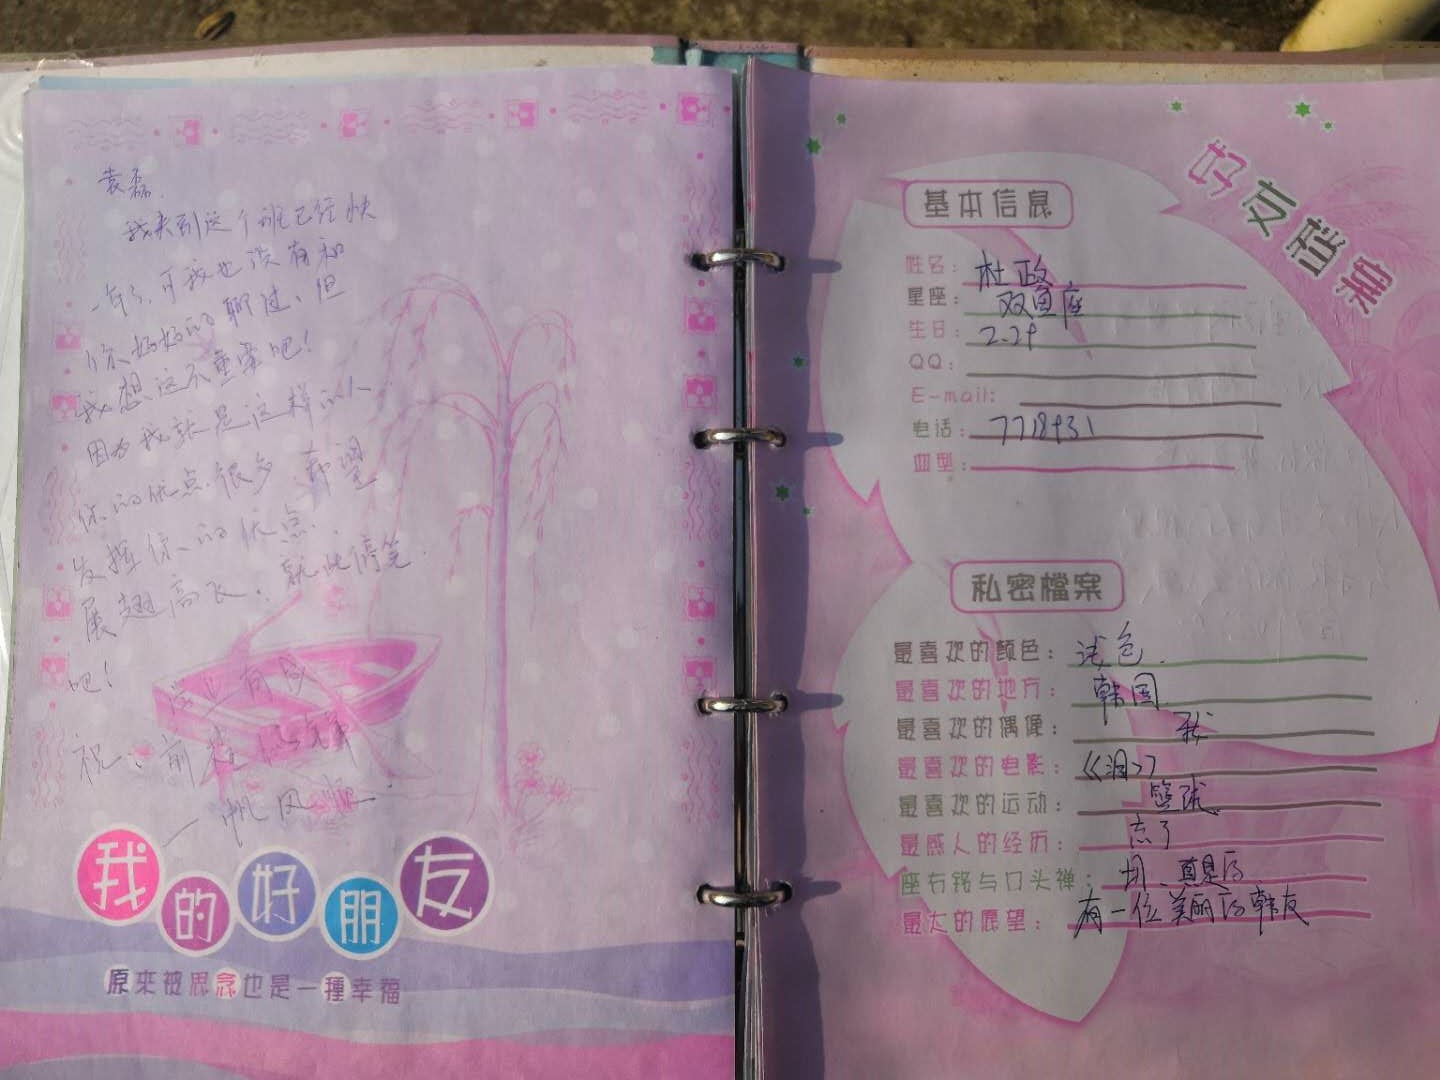 袁磊.
我来到这个班已经快
一年了,可我也没有和
你好好的聊过、但
我想这不重要吧!
因为我就是这样的人
你的优点.很多 希望
发挥你的优点.
展翅高飞.就此停笔
吧!
学业有成
祝、前程似锦
一帆风顺.
我的好朋友
原來被思念也是一種幸福
好友档案
基本信息
姓名: 杜政
星座: 双鱼座
生日: 2.29
QQ:
E-mail:
电话: 7718931
血型:
私密檔案
最喜欢的颜色: 色.
最喜欢的地方: 韩国
最喜欢的偶像: 我
最喜欢的电影: 《泪》
最喜欢的运动: 篮球
最感人的经历: 忘了
座右铭与口头禅: 切、真是的
最大的愿望: 有一位美丽的韩友